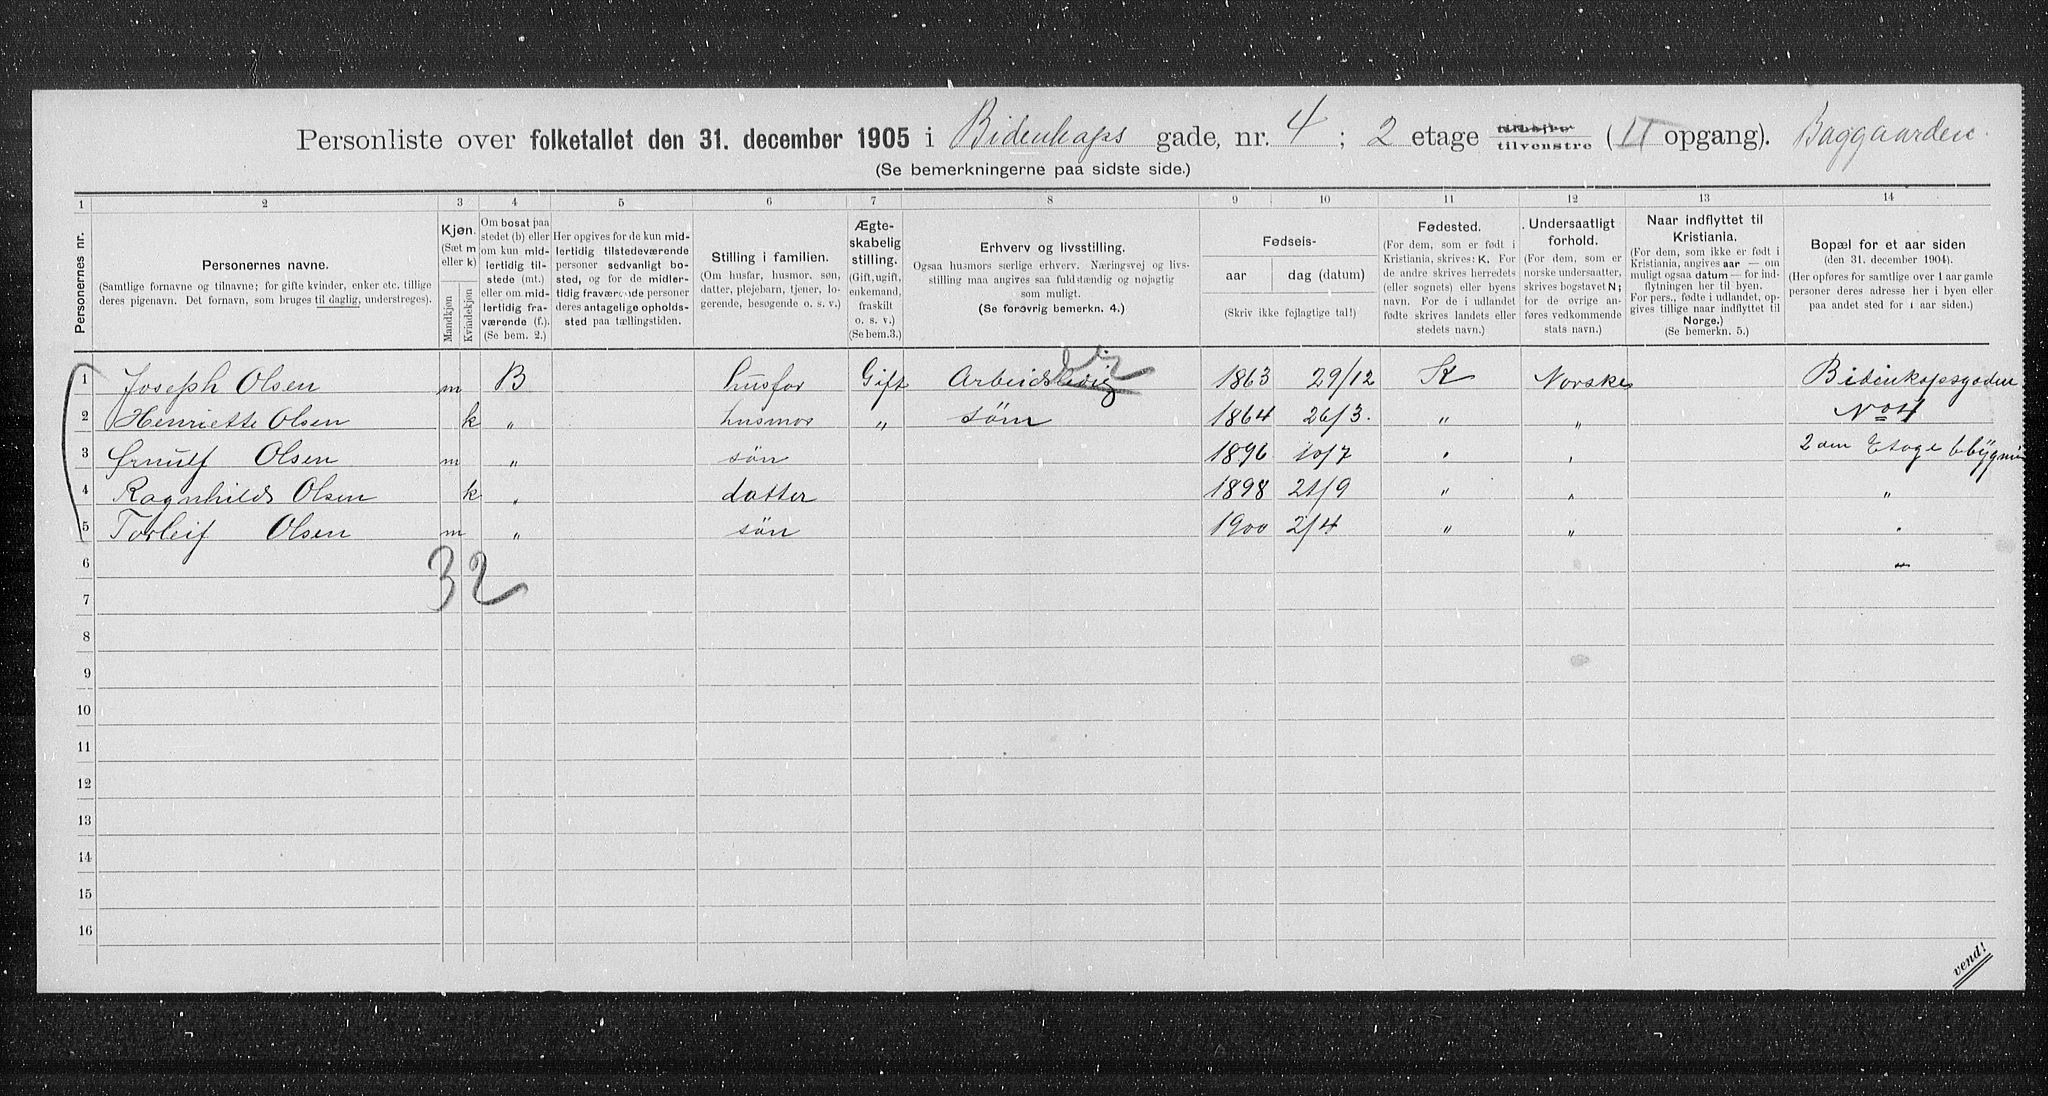 Personliste over folketallet den 31. december 1905 i Bidenkaps gade, nr. 4 ; 2 etage tilhøjre tilvenstre ( II opgang). Baggaarden.
(Se bemerkningerne paa sidste side.)
1 2 3 4 5 6 7 8 9 10 11 12 13 14
Personernes nr.
Personernes navne.
(Samtlige fornavne og tilnavne; for gifte kvinder, enker etc. tillige
deres pigenavn. Det fornavn, som bruges til daglig, understreges).
Kjøn.
(Sæt m
eller k)
Mandkjøn
Kvindekjøn
Om bosat paa
stedet (b) eller
om kun mid-
lertidig til-
stede (mt.)
eller om mid-
lertidig fra-
værende (f.).
(Se bem. 2.)
Her opgives for de kun mid-
lertidig tilstedeværende
personer sedvanligt bo-
sted, og for de midler-
tidig fraværende personer
deres antagelige opholds-
sted paa tællingstiden.
Stilling i familien.
(Om husfar, husmor, søn,
datter, plejebarn, tjener, lo-
gerende, besøgende o. s. v.)
Ægte-
skabelig
stilling.
(Gift, ugift,
enkemand,
fraskilt
o. s. v.)
(Se bem. 3.)
Erhverv og livsstilling.
Ogsaa husmors særlige erhverv. Næringsvej og livs-
stilling maa angives saa fuldstændig og nøjagtig
som muligt.
(Se forøvrig bemerkn. 4.)
Fødseis-
aar dag (datum)
(Skriv ikke fejlagtige tal!)
Fødested.
(For dem, som er født i
Kristiania, skrives: K. For
de andre skrives herredets
(eller sognets) eller byens
navn. For de i udlandet
fødte skrives landets eller
stedets navn.)
Undersaatligt
forhold.
(For dem, som er
norske undersaatter,
skrives bogstavet N;
for de øvrige an-
føres vedkommende
stats navn.)
Naar indflyttet til
Kristiania.
(For dem, som ikke er født i
Kristiania, angives aar — om
muligt ogsaa datum — for ind-
flytningen her til byen.
For pers., fødte i udlandet, op-
gives tillige naar indflyttet til
Norge.)
(Se bemerkn. 5.)
Bopæl for et aar siden
(den 31. december 1904).
(Her opføres for samtlige over 1 aar gamle
personer deres adresse her i byen eller
paa andet sted for 1 aar siden.)
1 Joseph Olsen m B husfar Gift Arbeidsledig 1863 29/12 K Norske Bidenkapsgaden
2 Henriette Olsen k „ husmor „ söm 1864 26/3. „ „ No 4
3 Ørnulf Olsen m „ sön 1896 10/7 „ „ 2 den Etage
4 Ragnhild Olsen k „ datter 1898 21/9 „ „ „
5 Torleif Olsen m „ sön 1900 2/4 „ „ „
6 „
32
7
8
9
10
11
12
13
14
15
16
vend!